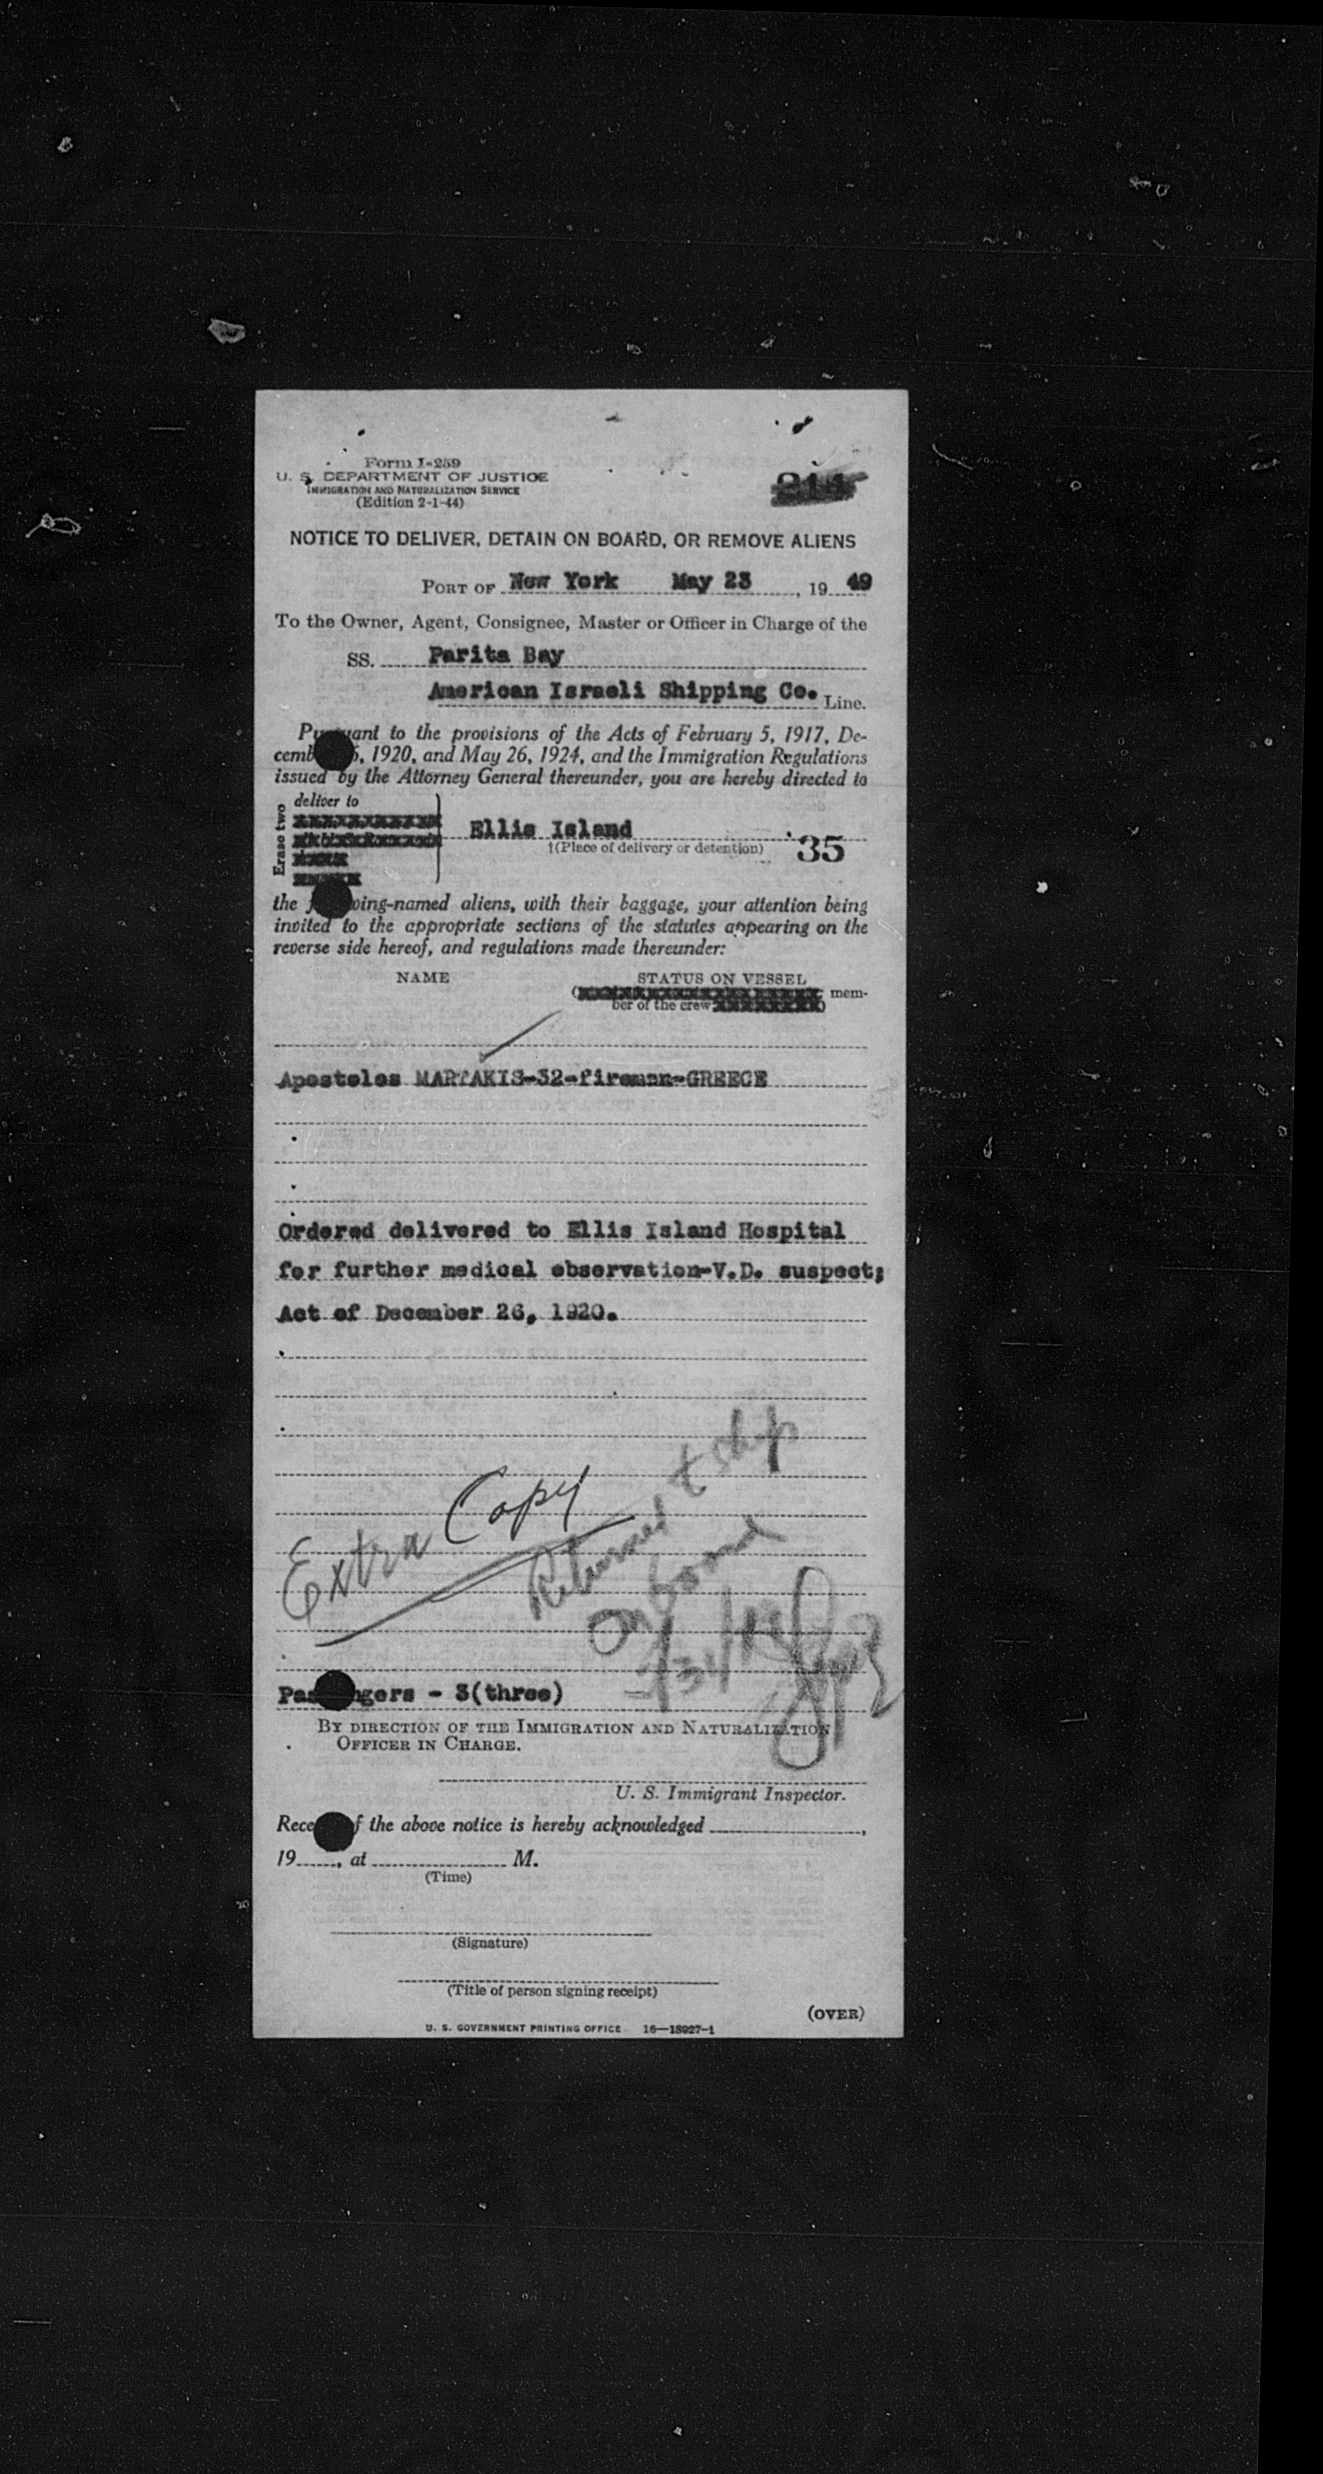 Form I-259
U. S. DEPARTMENT OF JUSTICE
IMMIGRATION AND NATURALIZATION SERVICE
(Edition 2-1-44)
NOTICE TO DELIVER, DETAIN ON BOARD, OR REMOVE ALIENS
PORT OF New York May 23, 19 49
To the Owner, Agent, Consignee, Master or Officer in Charge of the
SS. Parita Bay
American Israeli Shipping Co. Line.
Pursuant to the provisions of the Acts of February 5, 1917, De-
cember 26, 1920, and May 26, 1924, and the Immigration Regulations
issued by the Attorney General thereunder, you are hereby directed to
Erase two
deliver to
Ellis Island
†(Place of delivery or detention)
35
the following-named aliens, with their baggage, your attention being
invited to the appropriate sections of the statutes appearing on the
reverse side hereof, and regulations made thereunder:
NAME STATUS ON VESSEL
mem-
ber of the crew
Apostolos MARTAKIS-32-fireman-GREECE
Ordered delivered to Ellis Island Hospital
for further medical observation-V.D. suspect;
Act of December 26, 1920.
Extra Copy
Returned to ship
Passengers - 3(three)
BY DIRECTION OF THE IMMIGRATION AND NATURALIZATION
OFFICER IN CHARGE.
U. S. Immigrant Inspector.
Receipt of the above notice is hereby acknowledged ,
19 , at M.
(Time)
(Signature)
(Title of person signing receipt)
(OVER)
U. S. GOVERNMENT PRINTING OFFICE 16—18927-1